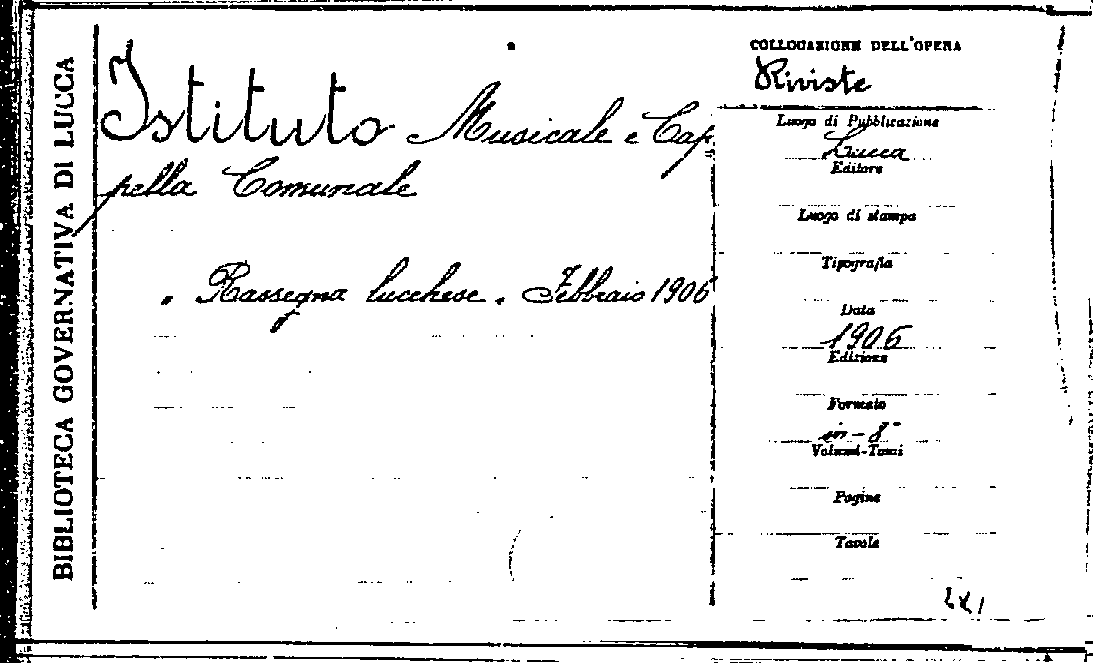 BIBLIOTECA GOVERNATIVA DI LUCCA
Istituto Musicale e Cap
pella Comunale
„ Rassegna lucchese „ Febbraio 1906
COLLOCAZIONE DELL'OPERA
Riviste
Luogo di Pubblicazione
Lucca
Editore
Luogo di stampa
Tipografia
Data
1906
Edizione
Formato
in-8°
Volumi-Tomi
Pagine
Tavole